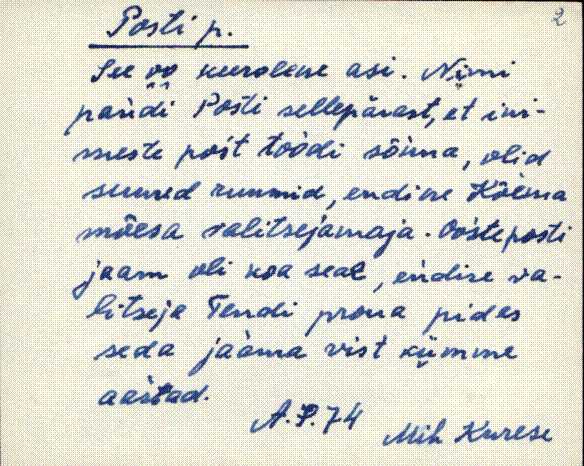 2
Posti p.
See oo keerolene asi. Nimi
pańdi Pośti sellepärast, et ini-
meste pośt toodi sõnna, olid
suured ruumid, endine Kõema
mõesa valitsejamaja. Oosteposti
jaam oli koa seal, endise va-
litseja Tendi proua pidas
seda jaama vist kümme
aastad.
A.P.74
Mih Kurese